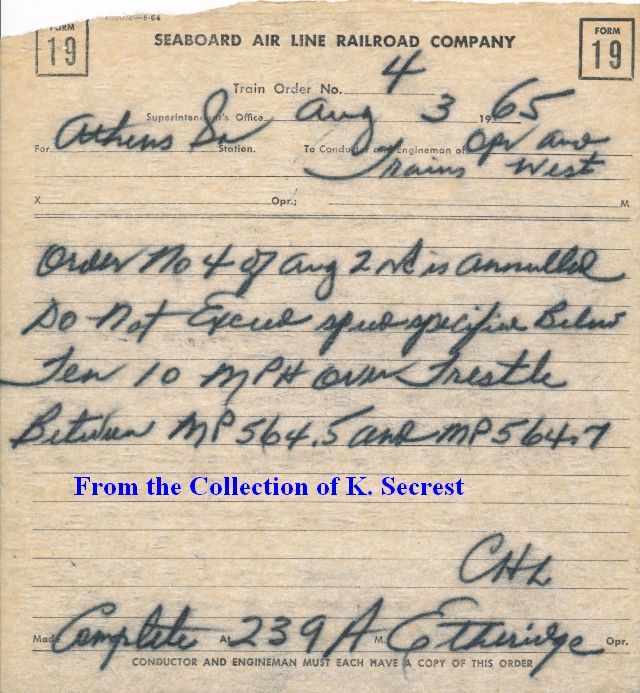 FORM 19
SEABOARD AIR LINE RAILROAD COMPANY
FORM 19
Train Order No. 4
Superintendent's Office Aug 3 1965
For Athens Ga Station. To Conductor and Engineman of Opr and
Trains West
X Opr.; M
Order No 4 of Aug 2nd is annulled
Do Not Exceed speed specified Below
Ten 10 MPH over Trestle
Between MP 564.5 and MP 564.7
From the Collection of K. Secrest
CHL
Made Complete At 239 A M. Etheridge Opr.
CONDUCTOR AND ENGINEMAN MUST EACH HAVE A COPY OF THIS ORDER